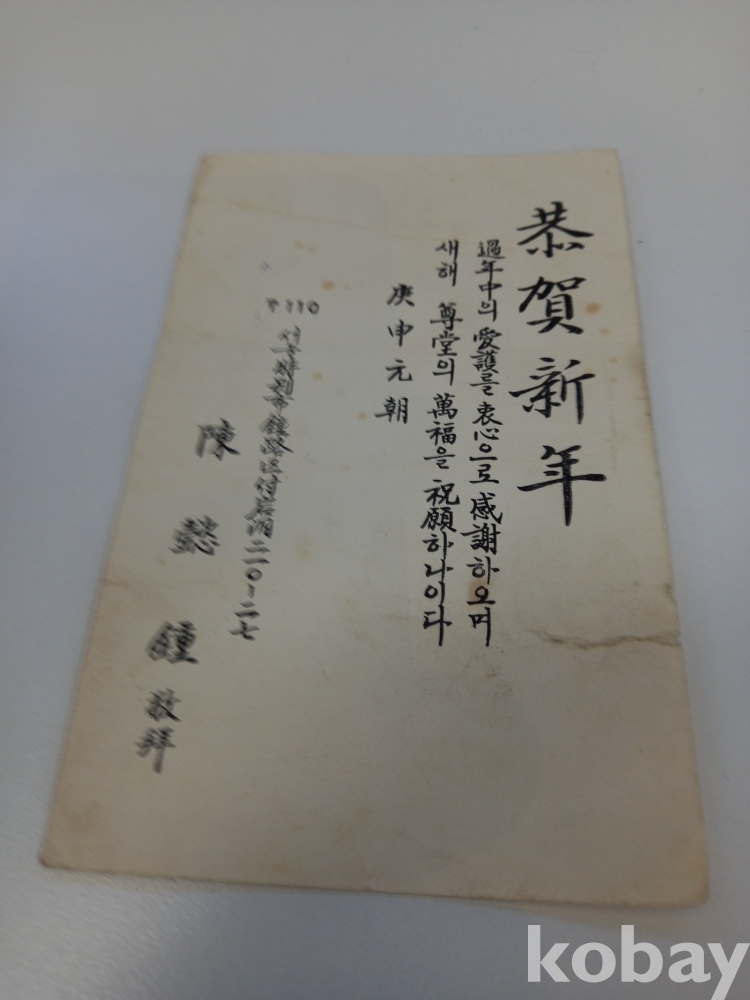 恭賀新年
過年中의 愛護를 衷心으로 感謝하오며
새해 尊堂의 萬福을 祝願하나이다
庚申元朝
〒110
서울特別市鍾路区付岩洞二二○-二七
陳懿鍾 敬拜
kobay